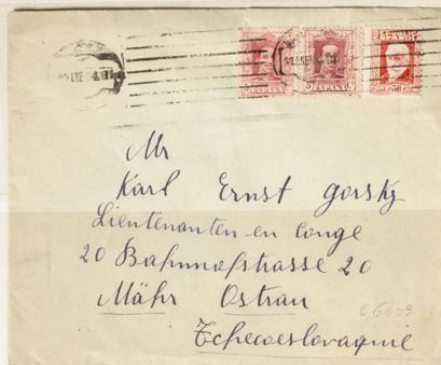 ESPAÑA ESPAÑA
Mr
Karl Ernst Gorsky
Lieutenanten-en Conge
20 Bahnhofstrasse 20
Mähr Ostrau
Tchecoeslovaquie
C6009